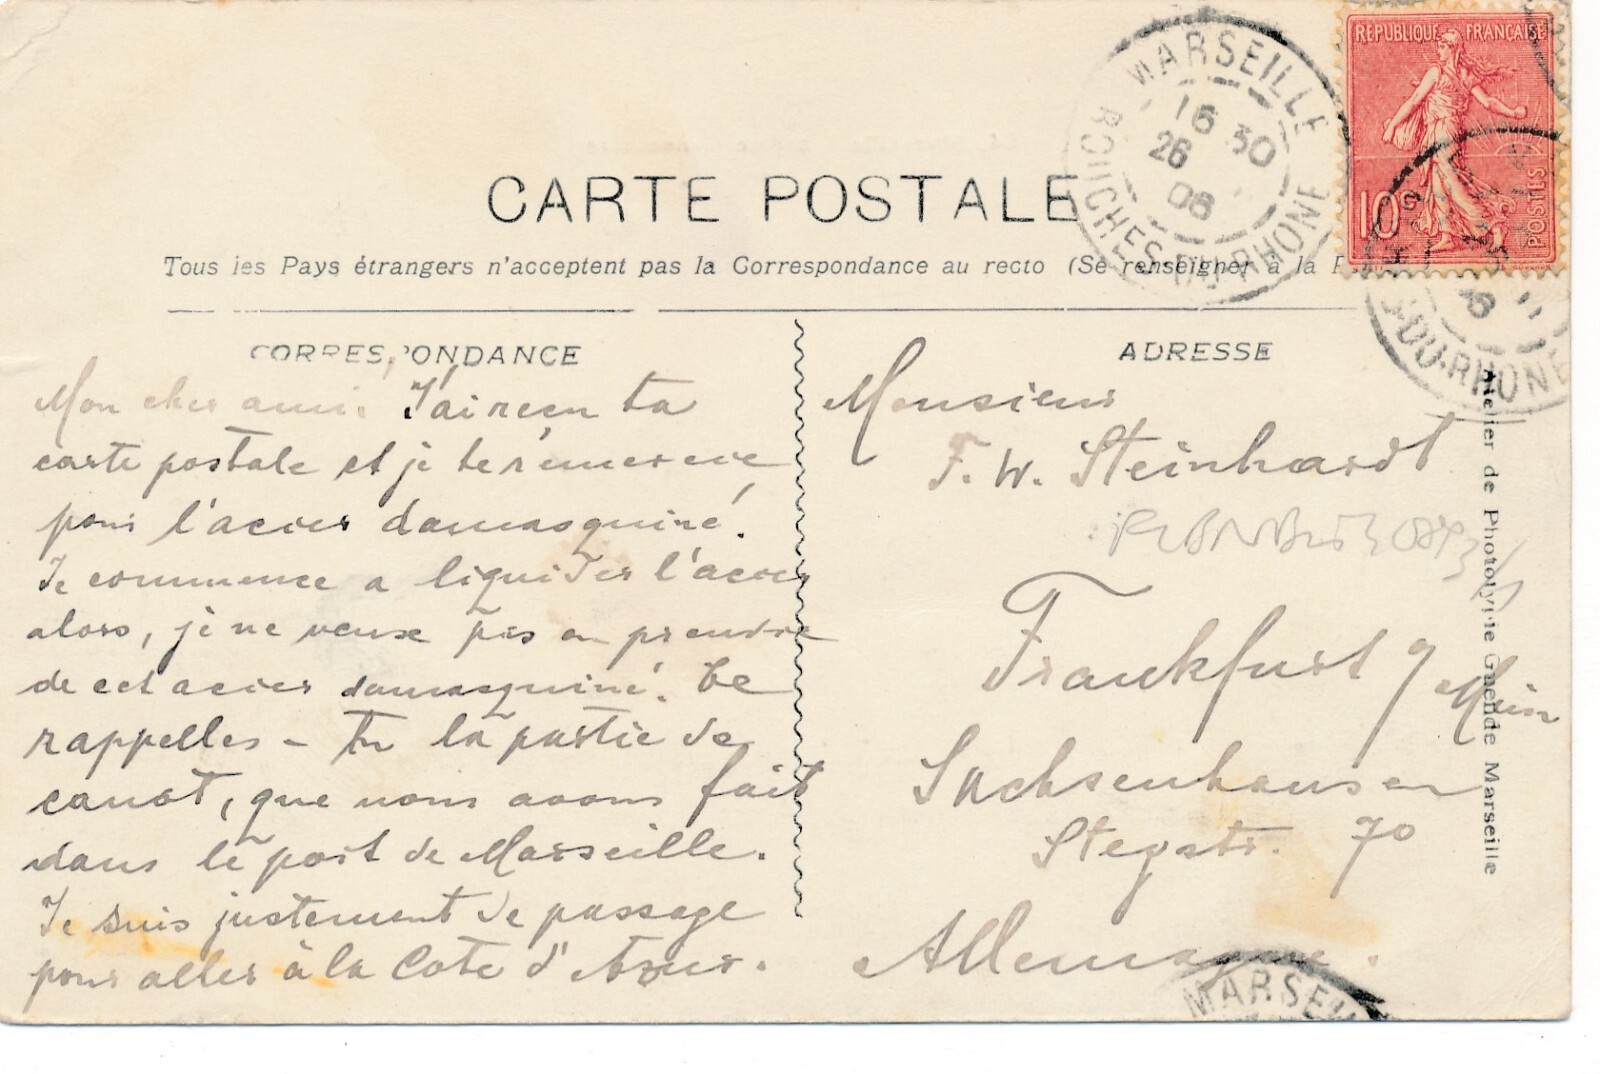 RÉPUBLIQUE FRANÇAISE
10
POSTES
MARSEILLE
16 30
26
06
BOUCHES-DU-RHONE
CARTE POSTALE
Tous les Pays étrangers n'acceptent pas la Correspondance au recto (Se renseigner à la
06
DU-RHONE
CORRESPONDANCE
Mon cher ami. J'ai reçu ta
carte postale et je te rémercie
pour l'acier damasquiné.
Je commence a liquider l'acier
alors, je ne veux pas en prendre
de cet acier damasquiné. Te
rappelles - tu la partie de
canot, que nous avons fait
dans le port de Marseille.
Je suis justement de passage
pour aller à la Cote d'Azur.
ADRESSE
Monsieur
F. W. Steinhardt
Frankfurt a/ Main
Sachsenhausen
Stegstr. 70
Allemagne.
Atelier de Phototypie Guende Marseille
MARSEILLE